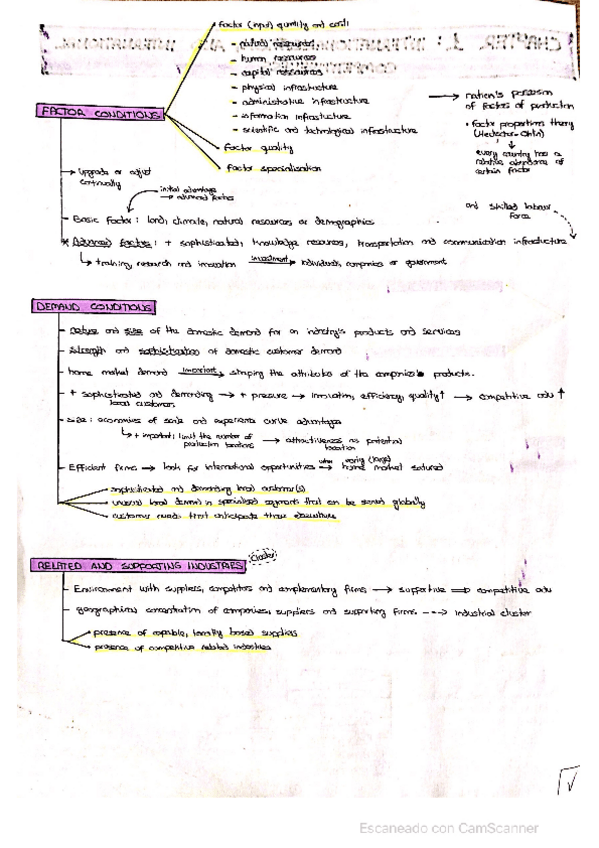 factor (input) quantity and cost
- natural resources
- human resources
- capital resources
- physical infrastructure
- administrative infrastructure
- information infrastructure
- scientific and technological infrastructure
FACTOR CONDITIONS
factor quality
factor specialisation
→ nation's possession of factors of production
• factor proportions theory
(Heckscher-Ohlin)
↓
every country has a
relative abundance of
certain factor
→ upgrade or adjust
continually
initial advantage
→ advanced factors
and skilled labour
force
- Basic factor: land, climate, natural resources or demographics
* Advanced factors: + sophisticated, knowledge resources, transportation and communication infrastructure
↳ training, research and innovation investment → individuals, companies or government
DEMAND CONDITIONS
- nature and size of the domestic demand for an industry's products and services
- strength and sophistication of domestic customer demand
- home market demand important → shaping the attributes of the companies products.
- + sophisticated and demanding local customers → + pressure → innovation, efficiency, quality ↑ → competitive adv ↑
- size: economies of scale and experience curve advantages
↳ + important: limit the number of production locations → attractiveness as potential location
- Efficient firms → look for international opportunities when → home market satured
sophisticated and demanding local customer(s)
unusual local demand in specialised segments that can be served globally
customer needs that anticipate those elsewhere
RELATED AND SUPPORTING INDUSTRIES
cluster
- Environment with suppliers, competitors and complementary firms → supportive ⇒ competitive adv
- geographical concentration of companies, suppliers and supporting firms. --→ industrial cluster
presence of capable, locally based suppliers
presence of competitive related industries
Escaneado con CamScanner